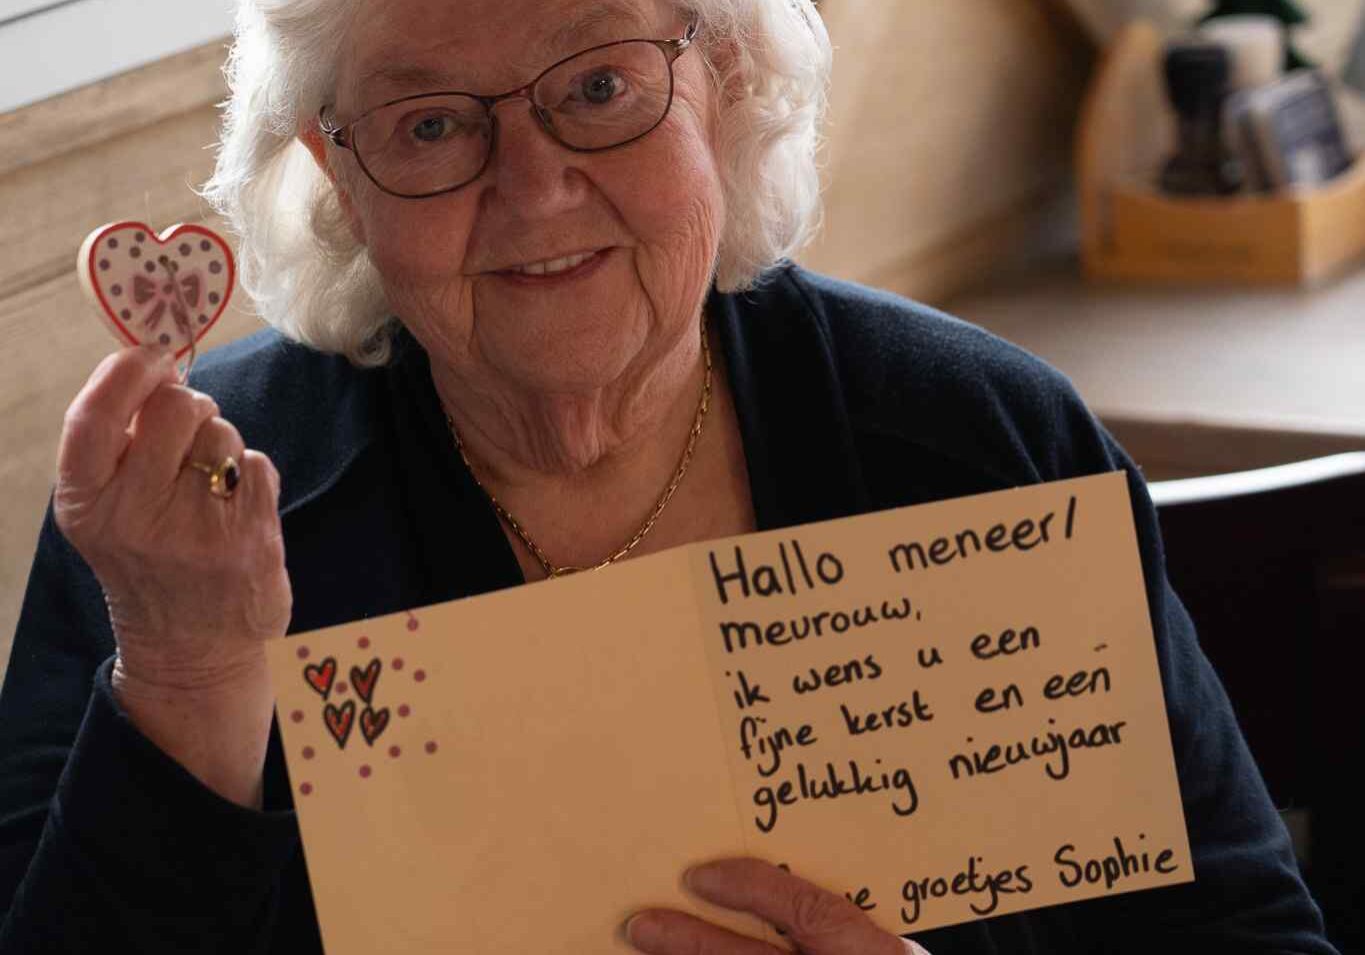 Hallo meneer/
meurouw,
ik wens u een
fijne kerst en een
gelukkig nieuwjaar
groetjes Sophie